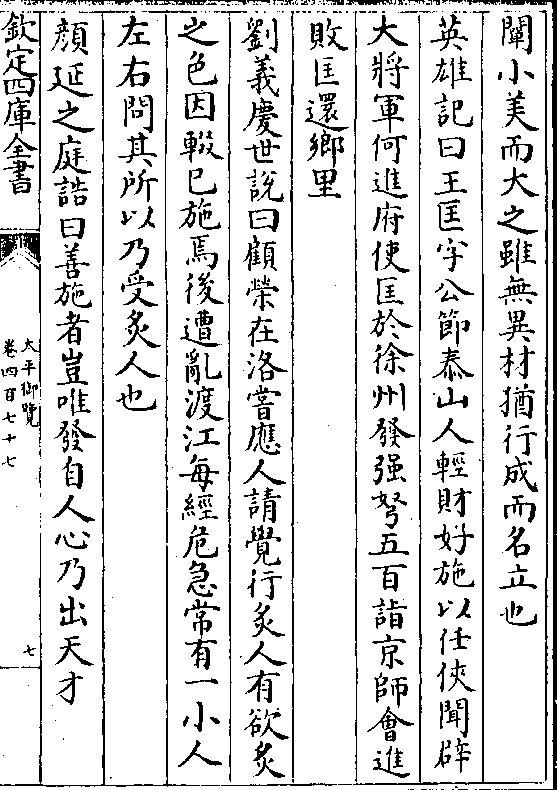 闡小美而大之雖無異材猶行成而名立也
英雄記曰王匡字公節泰山人輕財好施以任俠聞辟
大將軍何進府使匡於徐州發强弩五百詣京師會進
敗匡還鄉里
劉義慶世說曰顧榮在洛嘗應人請覺行炙人有欲炙
之色因輟已施焉後遭亂渡江每經危急常有一小人
左右問其所以乃受炙人也
顔延之庭誥曰善施者豈唯發自人心乃出天才
欽定四庫全書
太平御覽
卷四百七十七
七